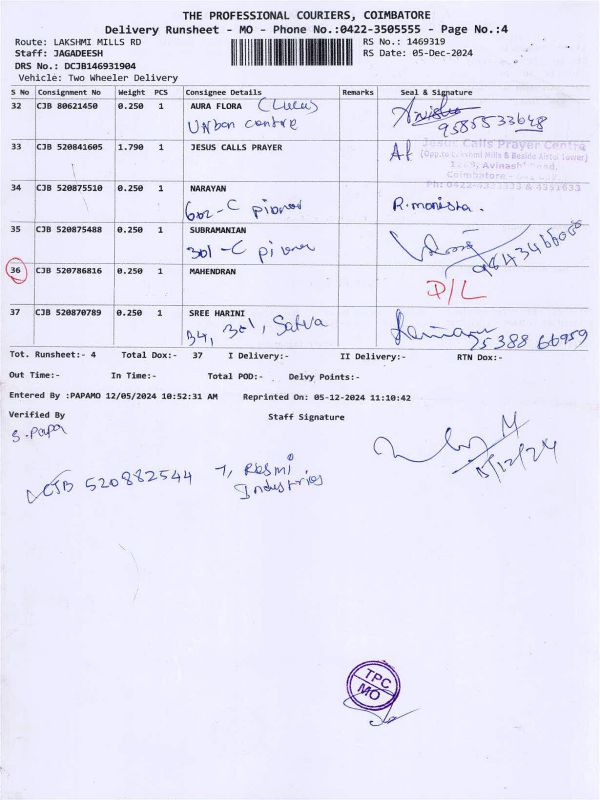 THE PROFESSIONAL COURIERS, COIMBATORE
Delivery Runsheet - MO - Phone No.:0422-3505555 - Page No.:4
Route: LAKSHMI MILLS RD RS No.: 1469319
Staff: JAGADEESH RS Date: 05-Dec-2024
DRS No.: DCJB146931904
Vehicle: Two Wheeler Delivery
S No Consignment No Weight PCS Consignee Details Remarks Seal & Signature
32 CJB 80621450 0.250 1 AURA FLORA (Lulu)
Urban centre
9585533648
33 CJB 520841605 1.790 1 JESUS CALLS PRAYER Af
Jesus Calls Prayer Centre
(Opp.to Lakshmi Mills & Beside Airtel Tower)
Avinashi Road,
Coimbatore -
Ph: 0422-4333333 & 4351633
34 CJB 520875510 0.250 1 NARAYAN
602-C pioner R.monisha.
35 CJB 520875488 0.250 1 SUBRAMANIAN
301-C pioner
36 CJB 520786816 0.250 1 MAHENDRAN
D/L
37 CJB 520870789 0.250 1 SREE HARINI
B4, 301, Satva
25388 66959
Tot. Runsheet:- 4 Total Dox:- 37 I Delivery:- II Delivery:- RTN Dox:-
Out Time:- In Time:- Total POD:- Delvy Points:-
Entered By :PAPAMO 12/05/2024 10:52:31 AM Reprinted On: 05-12-2024 11:10:42
Verified By Staff Signature
S.Papa
5/12/24
CJB 520882544 7, Rasmi
Industries
TPC
MO